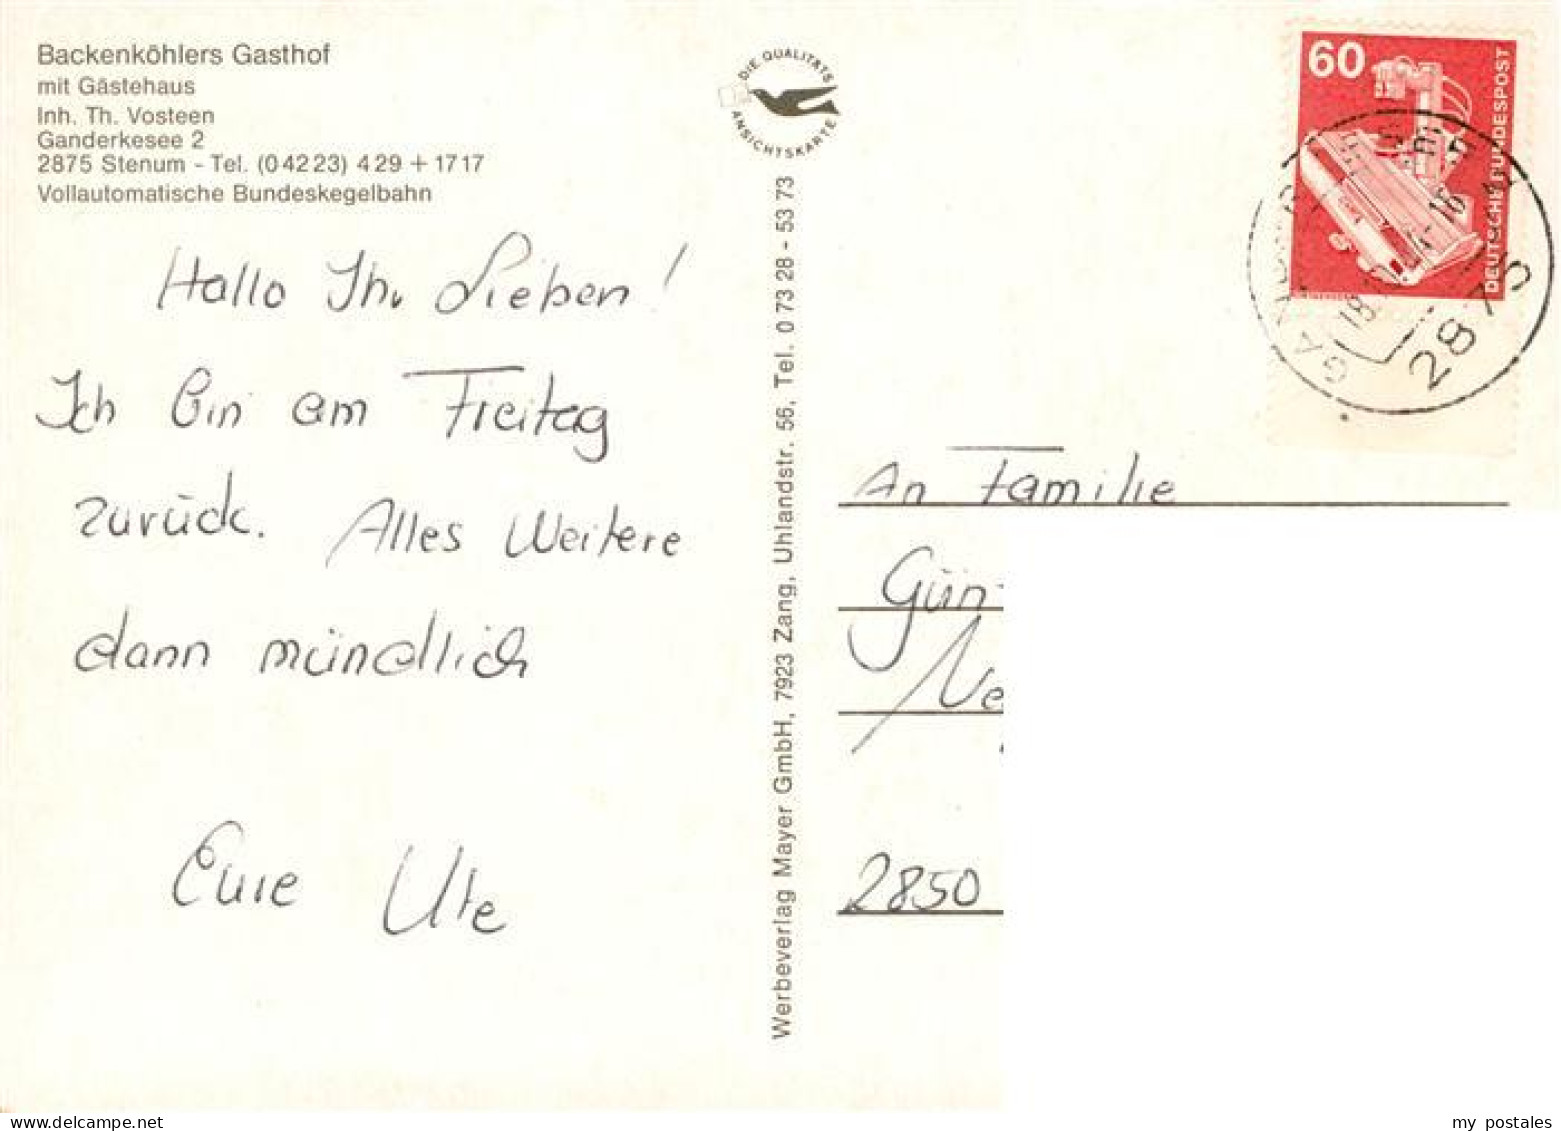 Backenköhlers Gasthof
mit Gästehaus
Inh. Th. Vosteen
Ganderkesee 2
2875 Stenum - Tel. (0 42 23) 4 29 + 17 17
Vollautomatische Bundeskegelbahn
Hallo Ihr Lieben!
Ich bin am Freitag
zurück. Alles Weitere
dann mündlich
Eure Ute
DIE QUALITÄTS
ANSICHTSKARTE
Werbeverlag Mayer GmbH, 7923 Zang, Uhlandstr. 56, Tel. 0 73 28 - 53 73
60
DEUTSCHE BUNDESPOST
2875
An Familie
Gün
Ne
2850
my postales